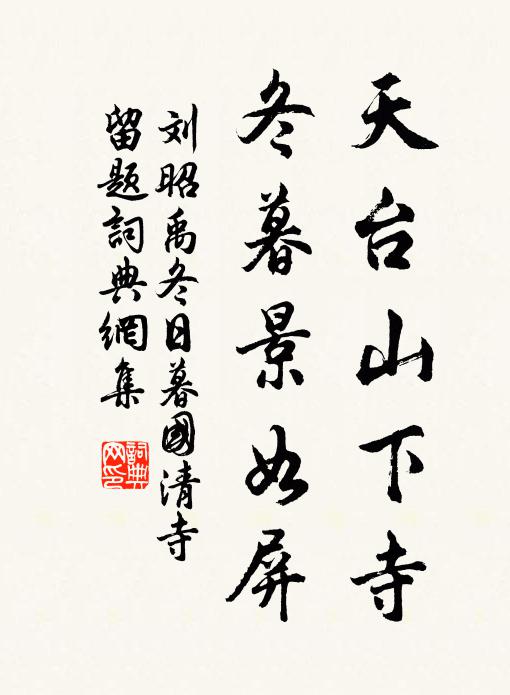 天台山下寺
冬暮景如屏
刘昭禹冬日暮國清寺
留题詞典網集
詞典網印